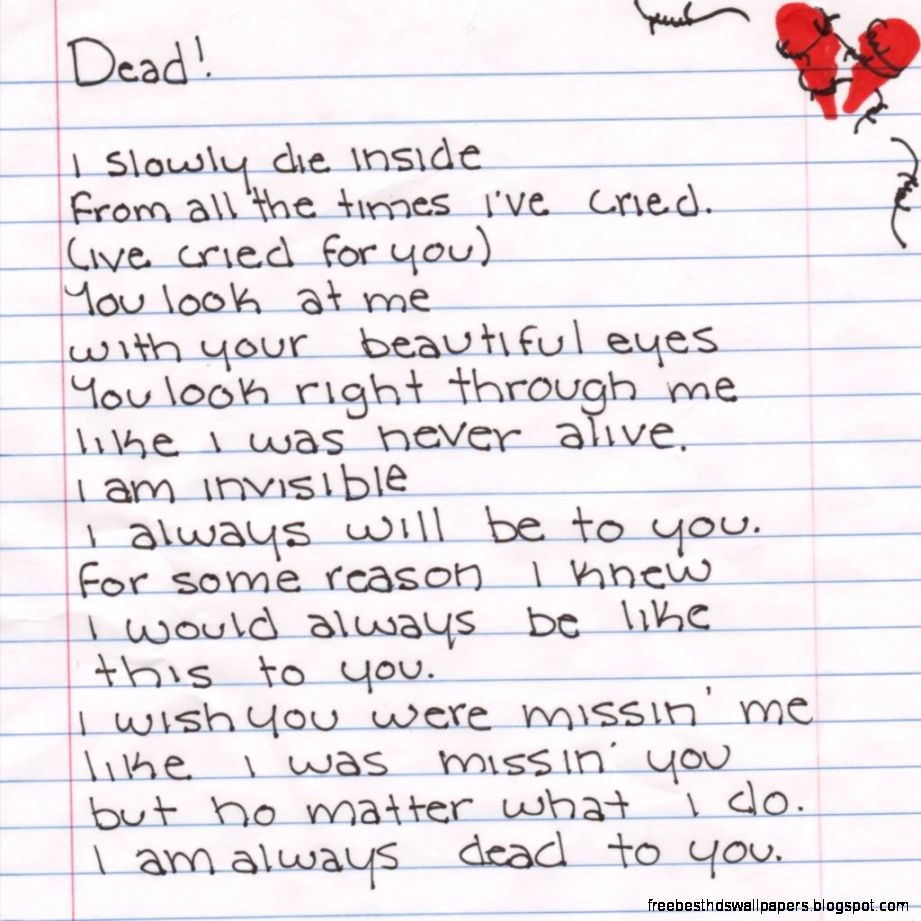 Dead!
I slowly die inside
From all the times I've cried.
(ive cried for you)
You look at me
with your beautiful eyes
You look right through me
like I was never alive.
I am invisible
I always will be to you.
For some reason I knew
I would always be like
this to you.
I wish you were missin' me
like I was missin' you
but no matter what I do.
I am always dead to you.
freebesthdswallpapers.blogspot.com